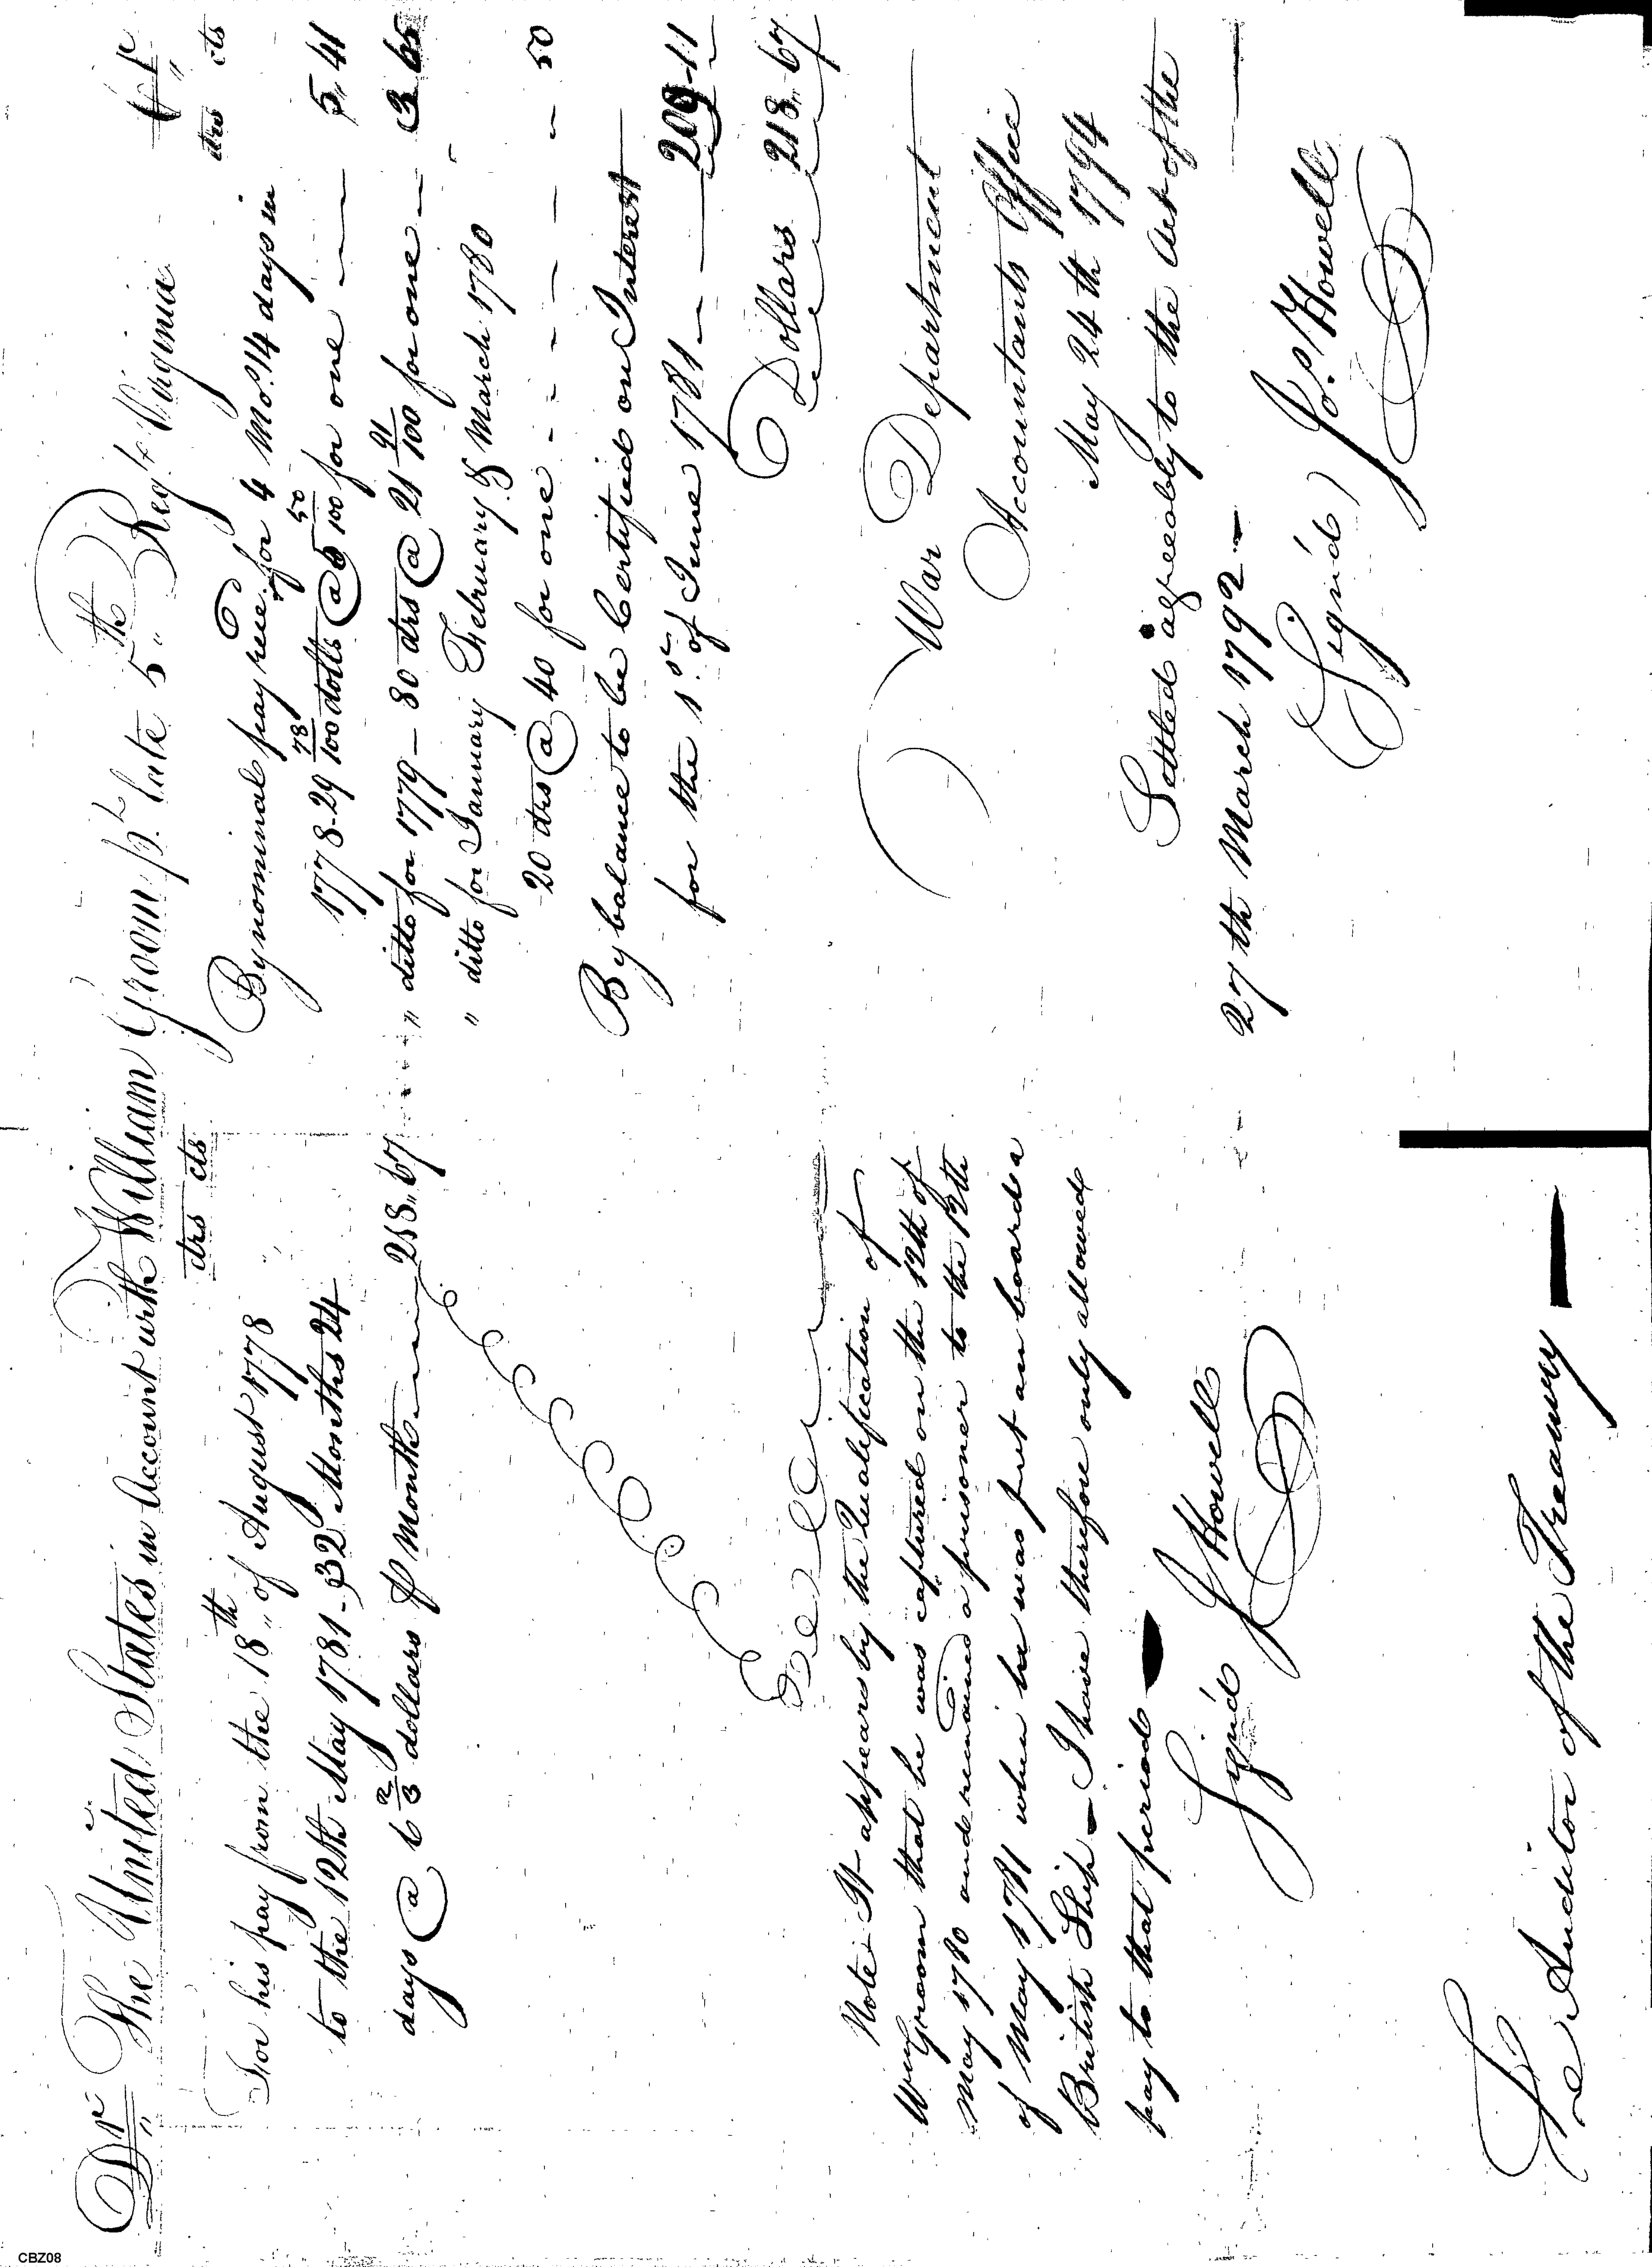 Dr The United States in Account with William Groom pt. late 5th Regt Virginia Cr
drs cts
For his pay from the 18th of August 1778
to the 12th May 1781 - 32 Months 24
days @ 6 2/3 dollars pr month 218..67
Note It appears by the Qualification of
Wm Groom that he was captured on the 12th of
May 1780 and remained a prisoner to the 12th
of May 1781 when he was put on board a
British Ship - I have therefore only allowed
pay to that period
Sign'd J Howell
drs cts
By nominal pay recd. for 4 Mos. 14 days in
1778 - 29 78/100 dolls @ 5 50/100 for one 5,, 41
" ditto for 1779 - 80 drs @ 21 91/100 for one 3 65
" ditto for January February & March 1780
20 drs @ 40 for one - - - - - - 50
By balance to be Certified on Interest
for the 1st. of June 1781 209-11
Dollars 218..67
War Department
Accountants Office
May 24th 1794
Settled agreeably to the Act of the
27th March 1792
(Sign'd) Jo. Howell
The Auditor of the Treasury
CBZ08